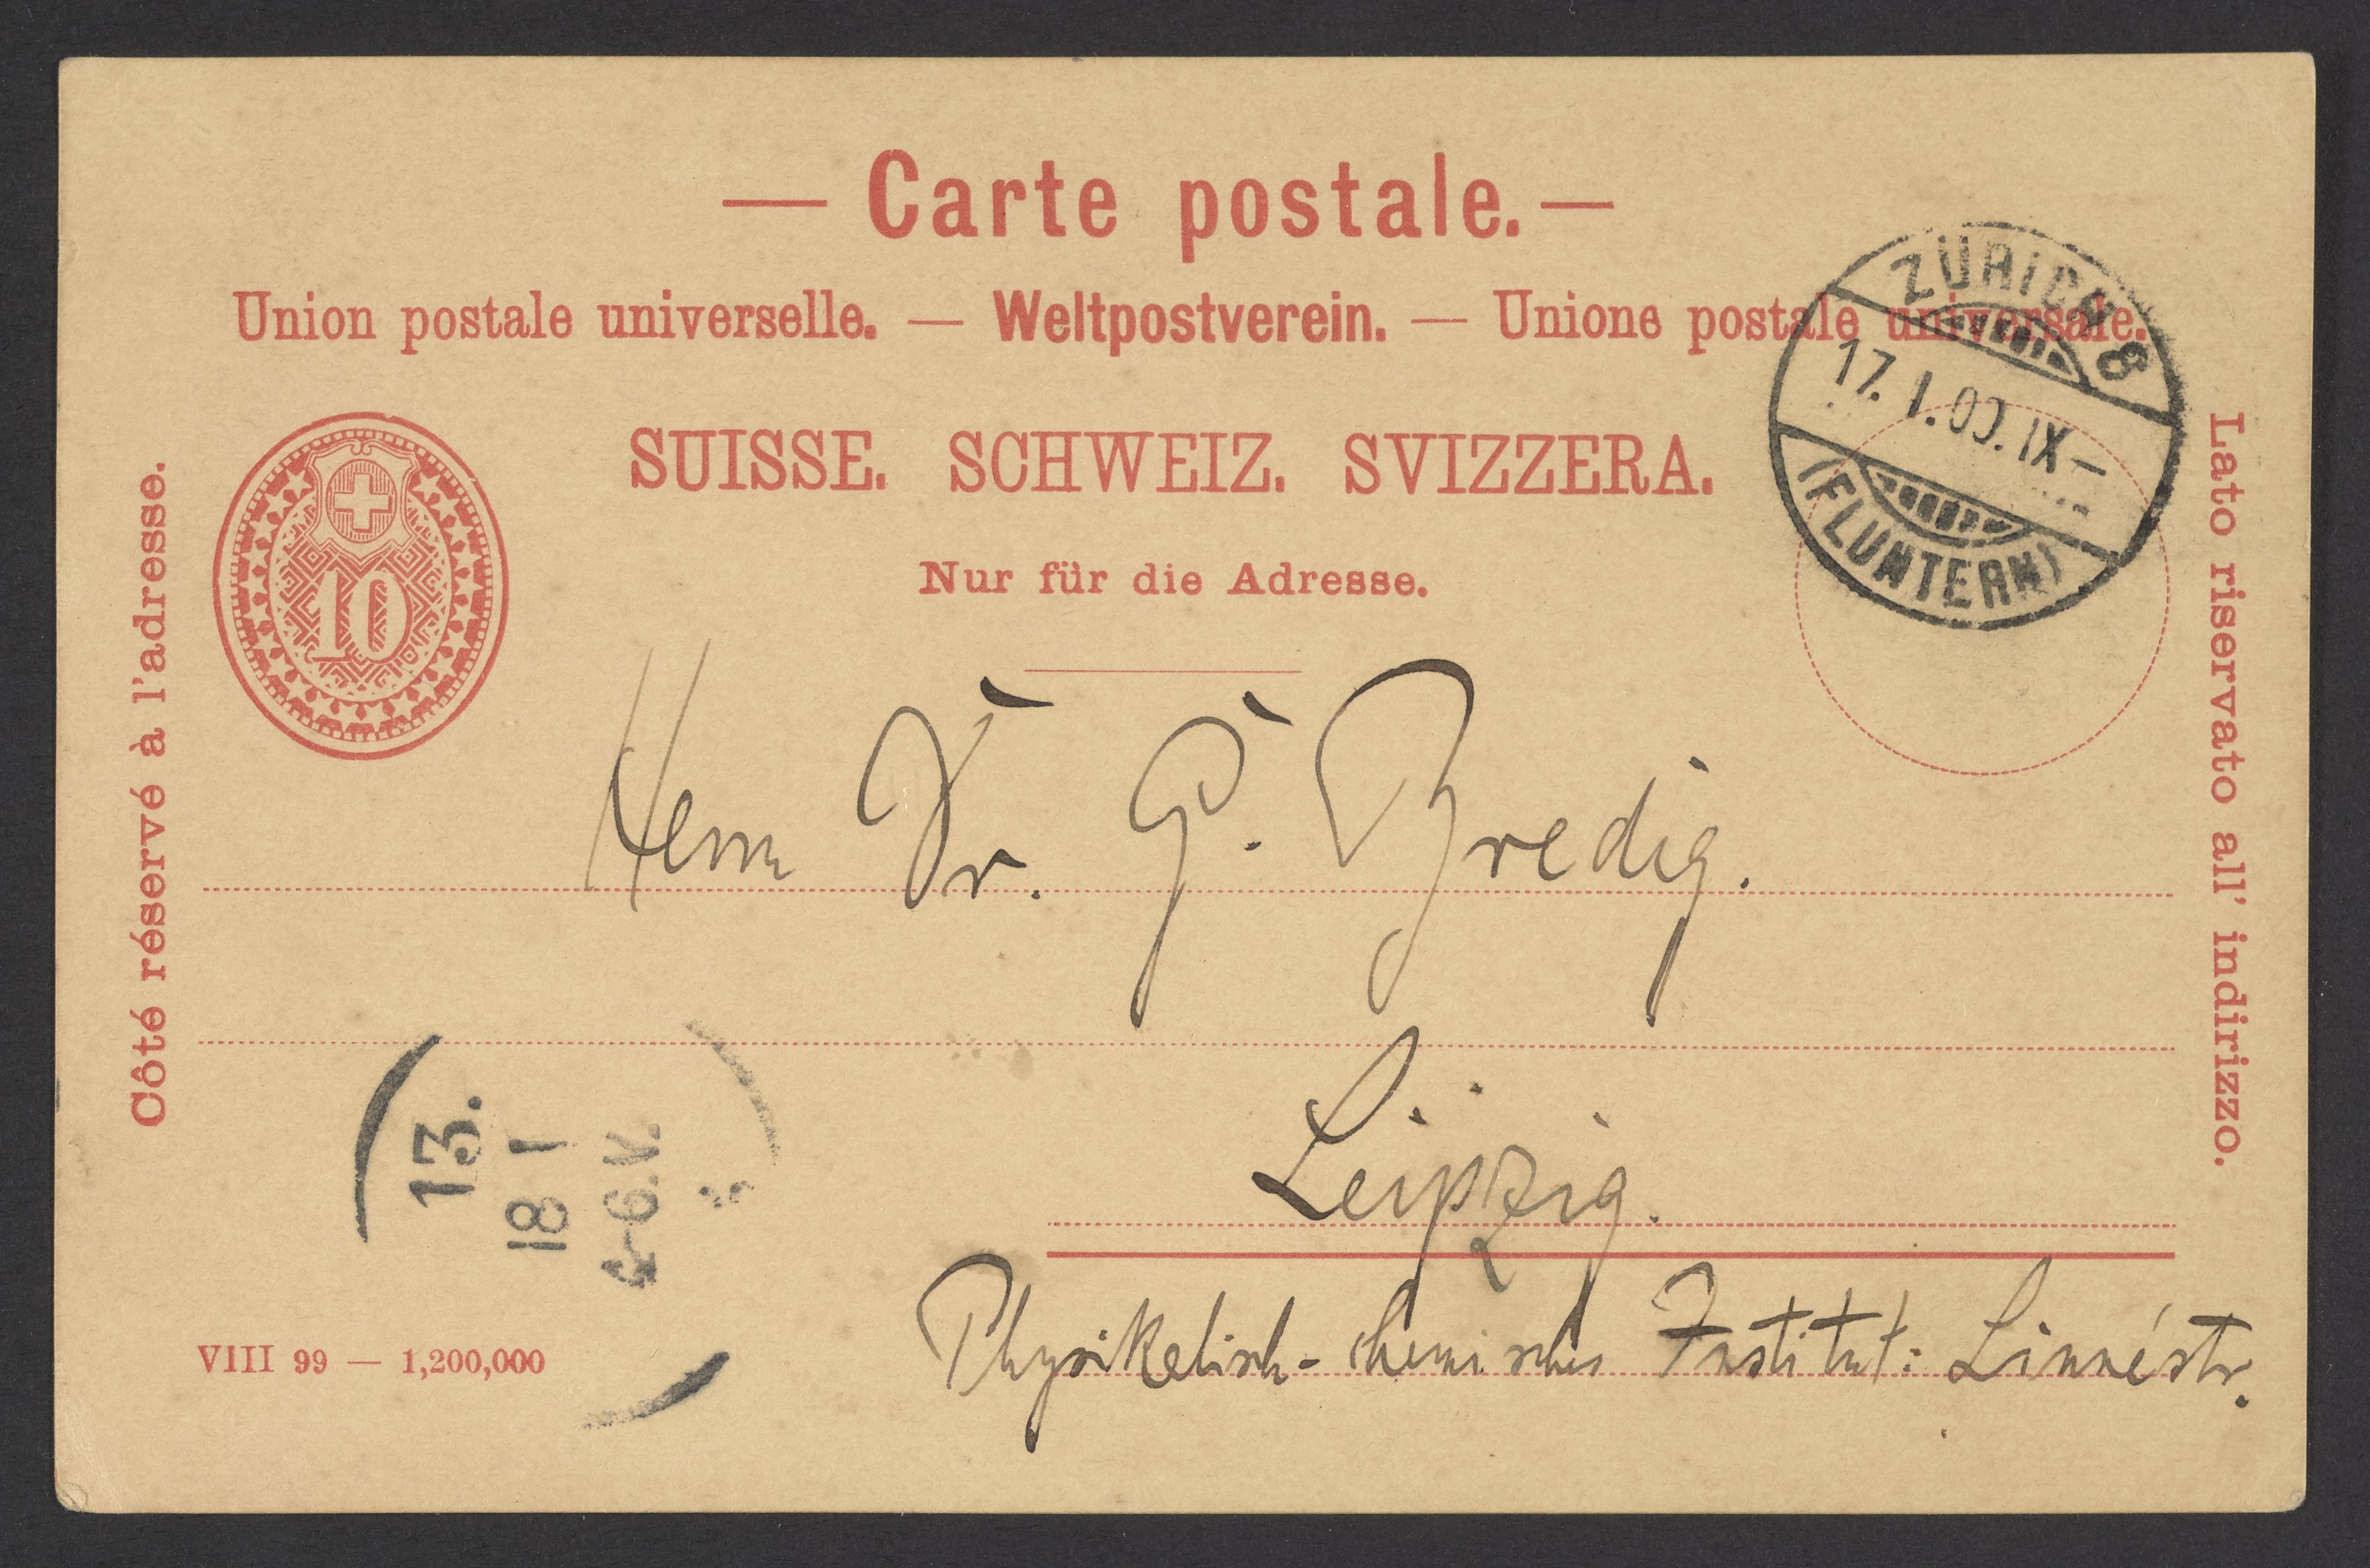 — Carte postale. —
Union postale universelle. — Weltpostverein. — Unione postale universale.
SUISSE. SCHWEIZ. SVIZZERA.
Nur für die Adresse.
Côté réservé à l'adresse.
Lato riservato all' indirizzo.
10
ZÜRICH 8
17. I. 00. IX –
(FLUNTERN)
Herrn Dr. G. Bredig.
Leipzig.
Physikalisch-chemisches Institut: Linnéstr.
13.
18 1
4-6.V.
VIII 99 — 1,200,000